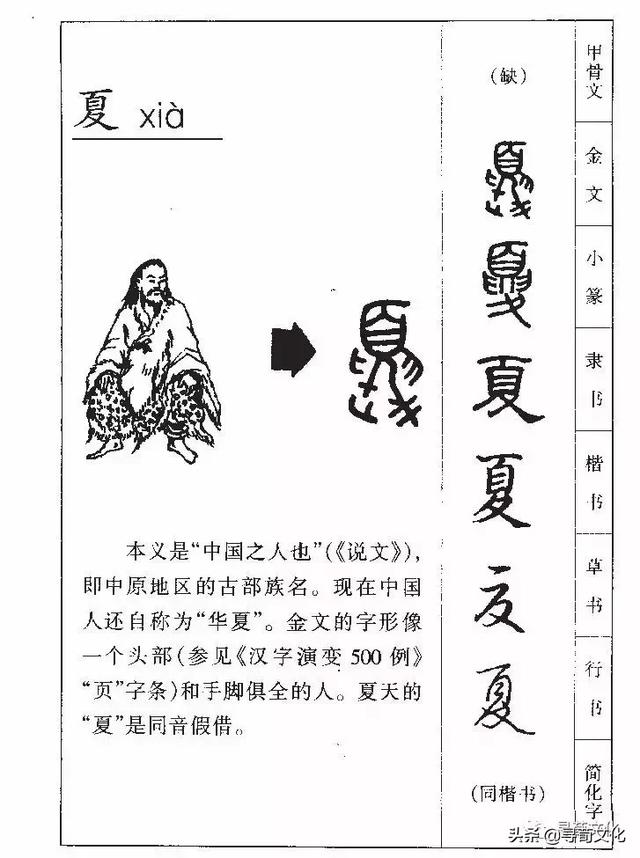 夏 xià
本义是“中国之人也”(《说文》),
即中原地区的古部族名。现在中国
人还自称为“华夏”。金文的字形像
一个头部(参见《汉字演变 500 例》
“页”字条)和手脚俱全的人。夏天的
“夏”是同音假借。
(缺)
夏
夏
夏
夏
夏
夏
(同楷书)
甲骨文
金文
小篆
隶书
楷书
草书
行书
简化字
头条 @寻荀文化